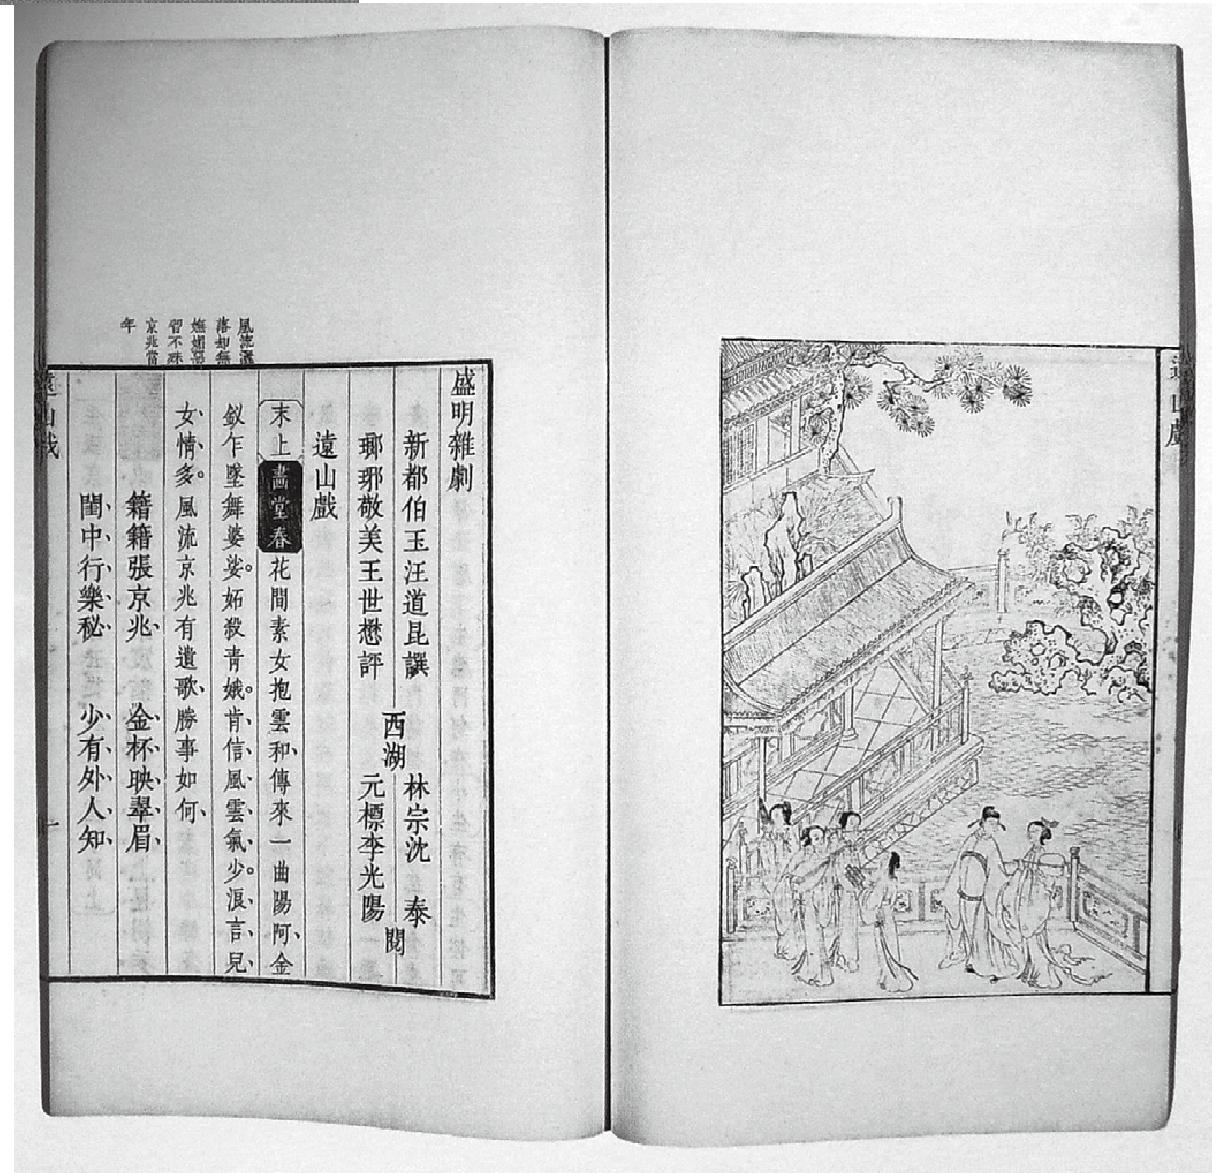 遠山戲
風流灑
落却無
嫵媚惡
習不殊
京兆當
年
盛明雜劇
新都伯玉汪道昆譔　林宗沈　泰
瑯琊敬美王世懋評　西湖　元標李光陽　閱
遠山戲
末上　畫堂春　花間素女抱雲和、傳來一曲陽阿、金
釵乍墜舞婆娑。妬殺青娥。肯信風雲、氣少。浪言、兒
女、情、多。風流京兆有遺歌、勝事如何、
籍籍張京兆、　金杯映翠眉、
閨中行樂秘、　少有外人知、
遠山戲
一